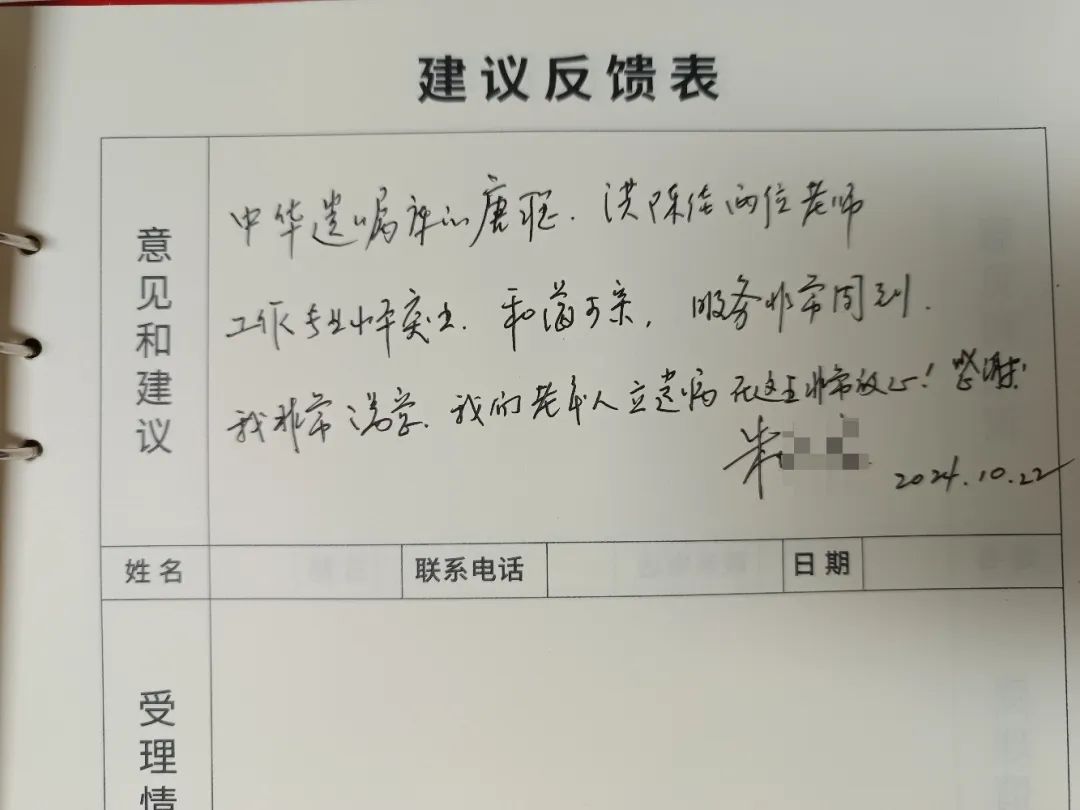 建议反馈表
意见和建议
中华遗嘱库的唐聪、洪陈佳两位老师
工作专业水平突出、和蔼可亲,服务非常周到.
我非常满意、我们老年人立遗嘱在这里非常放心!感谢!
朱
2024.10.22
姓名 联系电话 日期
受理情